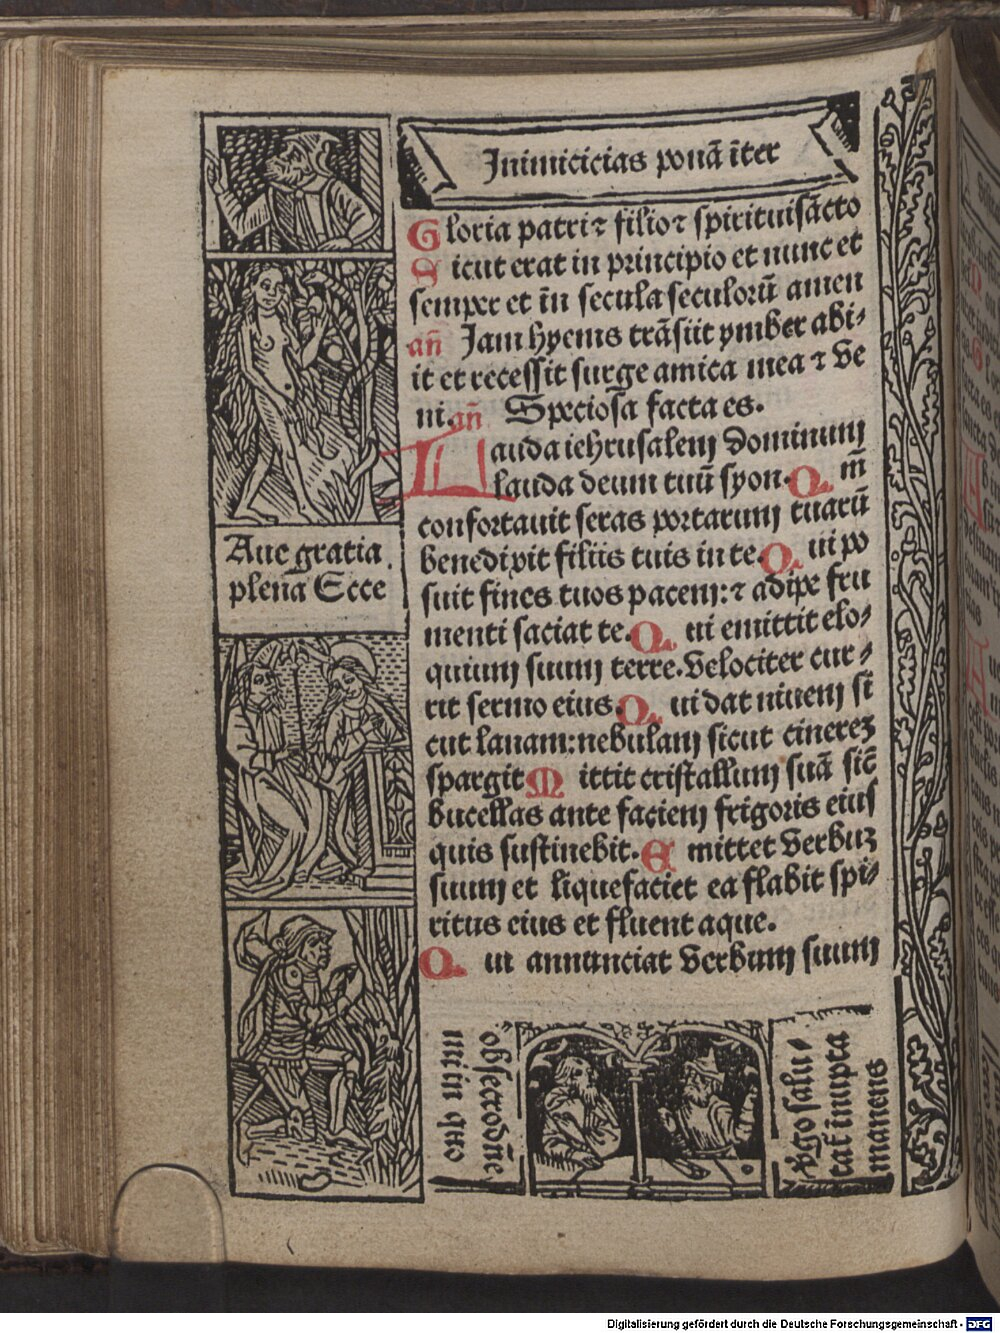 Inimicicias ponā īter
Gloria patri ⁊ filio ⁊ spirituisācto
Sicut erat in principio et nunc et
semper et īn secula seculorū amen
an̄ Jam hyems trāsiit ymber abi-
it et recessit surge amica mea ⁊ ve
ni. an̄ Speciosa facta es.
Lauda iehrusalem dominum
lauda deum tuū syon. Qm̄
confortauit seras portarum tuarū
benedixit filiis tuis in te. Qui po
suit fines tuos pacem: ⁊ adipe fru
menti saciat te. Qui emittit elo-
quium suum terre. Velociter cur-
rit sermo eius. Qui dat niuem si
cut lanam: nebulam sicut cinerez
spargit Mittit cristallum suā sic̄
bucellas ante faciem frigoris eius
quis sustinebit. Emittet verbuz
suum et liquefaciet ea flabit spi-
ritus eius et fluent aque.
Qui annunciat verbum suum
Aue gratia
plena Ecce
obsecro dn̄e
mi in quo
v̄go salu-
tat̄ inupta
manens
Digitalisierung gefördert durch die Deutsche Forschungsgemeinschaft - DFG